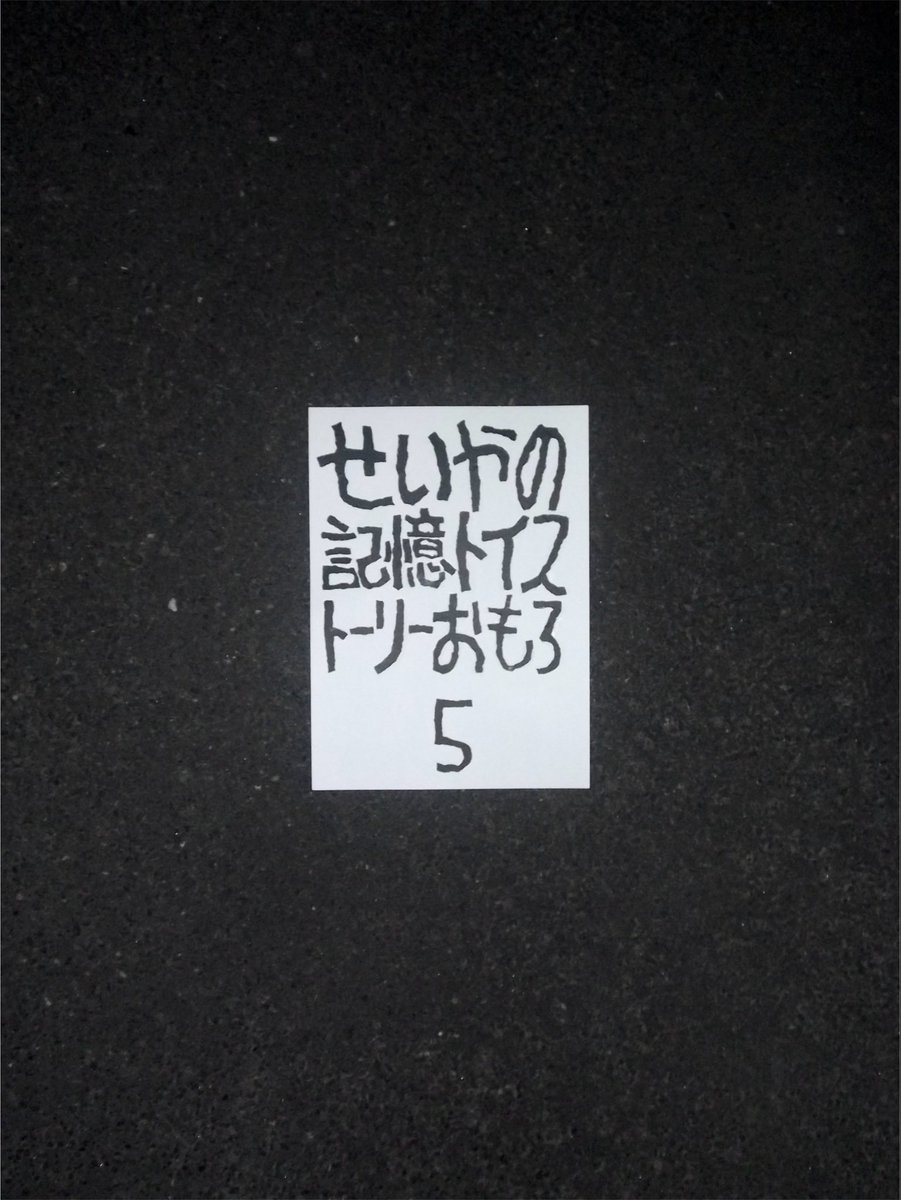 せいやの
記憶トイス
トーリーおもろ
5